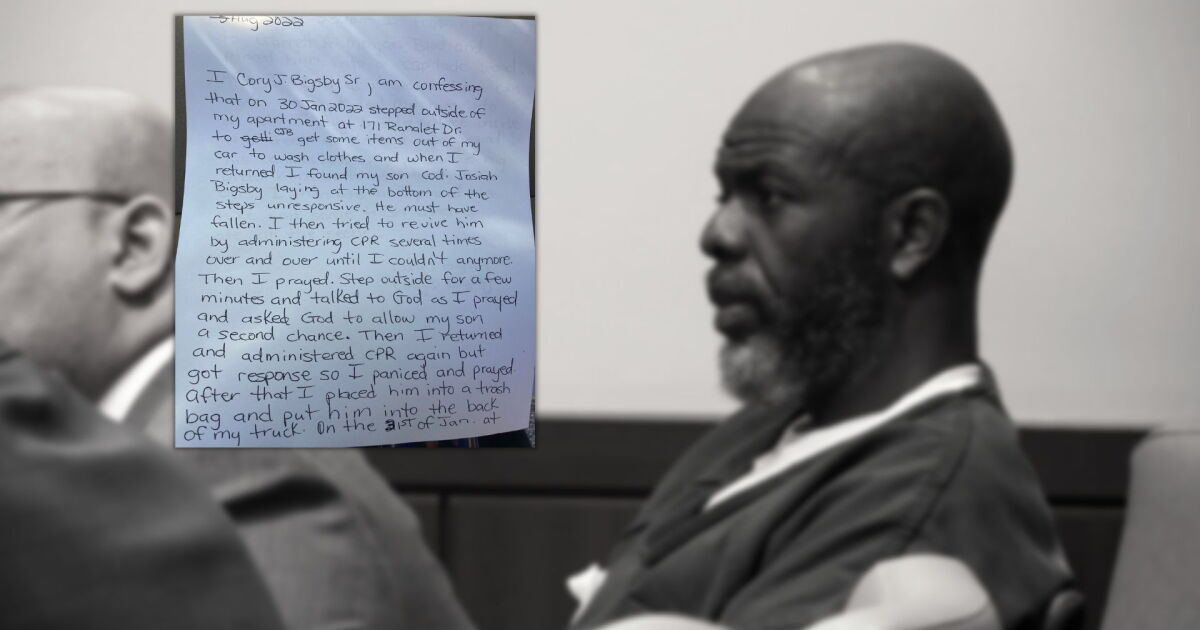 5 Aug 2022
I Cory J. Bigsby Sr, am confessing
that on 30 Jan 2022 stepped outside of
my apartment at 171 Ranalet Dr.
to getti CJB get some items out of my
car to wash clothes and when I
returned I found my son Codi Josiah
Bigsby laying at the bottom of the
steps unresponsive. He must have
fallen. I then tried to revive him
by administering CPR several times
over and over until I couldn't anymore.
Then I prayed. Step outside for a few
minutes and talked to God as I prayed
and asked God to allow my son
a second chance. Then I returned
and administered CPR again but
got response so I paniced and prayed.
After that I placed him into a trash
bag and put him into the back
of my truck. On the 31st of Jan. at